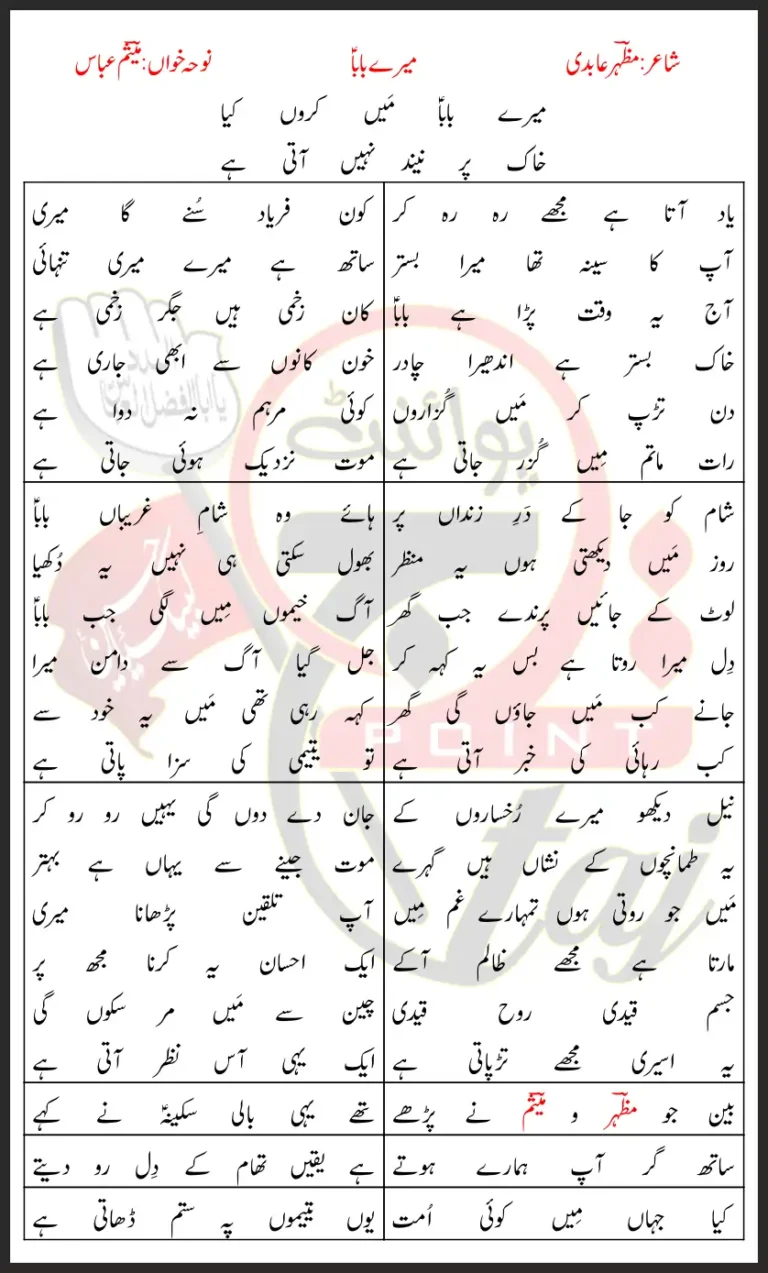 شاعر: مظہر عابدی
میرے باباؑ
نوحہ خواں: میثم عباس
میرے باباؑ مَیں کروں کیا
خاک پر نیند نہیں آتی ہے
یاد آتا ہے مجھے رہ رہ کر
آپ کا سینہ تھا میرا بستر
آج یہ وقت پڑا ہے باباؑ
خاک بستر ہے اندھیرا چادر
دن تڑپ کر مَیں گُزاروں
رات ماتم مِیں گُزر جاتی ہے
کون فریاد سُنے گا میری
ساتھ ہے میرے میری تنہائی
کان زخمی ہیں جگر زخمی ہے
خون کانوں سے ابھی جاری ہے
کوئی مرہم نہ دوا ہے
موت نزدیک ہوئی جاتی ہے
شام کو جا کے دَرِ زنداں پر
روز مَیں دیکھتی ہوں یہ منظر
لوٹ کے جائیں پرندے جب گھر
دِل میرا روتا ہے بس یہ کہہ کر
جانے کب مَیں جاؤں گی گھر
کب رہائی کی خبر آتی ہے
ہائے وہ شامِ غریباں باباؑ
بھول سکتی ہی نہیں یہ دُکھیا
آگ خیموں مِیں لگی جب باباؑ
جل گیا آگ سے دامن میرا
کہہ رہی تھی مَیں یہ خود سے
تو یتیمی کی سزا پاتی ہے
نیل دیکھو میرے رُخساروں کے
یہ طمانچوں کے نشاں ہیں گہرے
مَیں جو روتی ہوں تمہارے غم مِیں
مارتا ہے مجھے ظالم آکے
جسم قیدی روح قیدی
یہ اسیری مجھے تڑپاتی ہے
جان دے دوں گی یہیں رو رو کر
موت جینے سے یہاں ہے بہتر
آپ تلقین پڑھانا میری
ایک احسان یہ کرنا مجھ پر
چین سے مَیں مر سکوں گی
ایک یہی آس نظر آتی ہے
بین جو مظہر و میثم نے پڑھے
تھے یہی بالی سکینہؑ نے کہے
ساتھ گر آپ ہمارے ہوتے
ہے یقیں تھام کے دِل رو دیتے
کیا جہاں مِیں کوئی اُمت
یوں یتیموں پہ ستم ڈھاتی ہے
پوائنٹ
POINT
taj